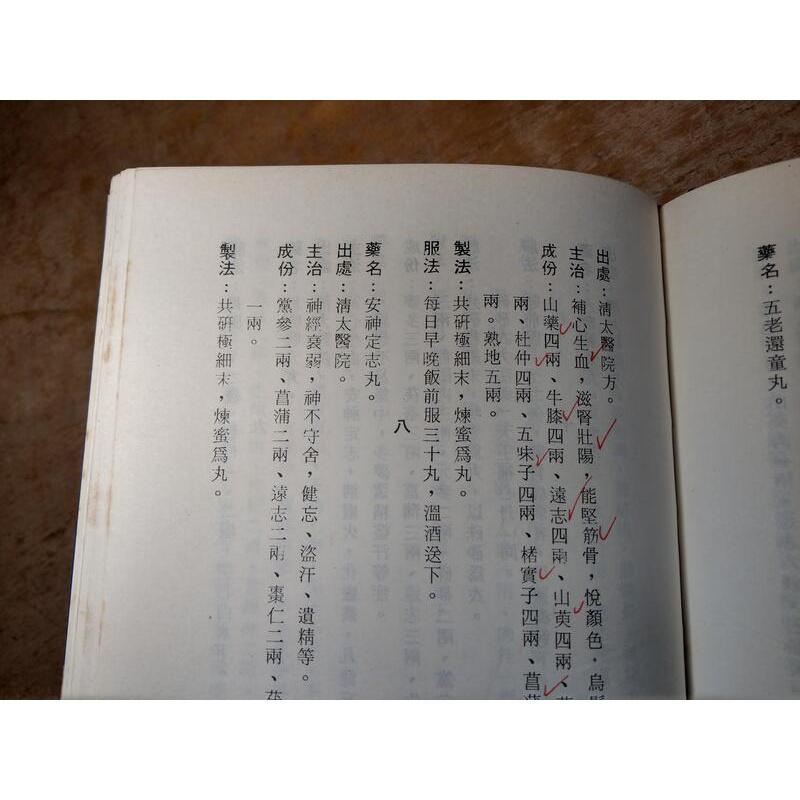 藥名：五老還童丸。
出處：清太醫院方。
主治：補心生血，滋腎壯陽，能堅筋骨，悅顏色，烏
成份：山藥四兩、牛膝四兩、遠志四兩、山萸四兩、
兩、杜仲四兩、五味子四兩、楮實子四兩、菖
兩。熟地五兩。
製法：共研極細末，煉蜜為丸。
服法：每日早晚飯前服三十丸，溫酒送下。
八
藥名：安神定志丸。
出處：清太醫院。
主治：神經衰弱，神不守舍，健忘、盜汗、遺精等。
成份：黨參二兩、菖蒲二兩、遠志二兩、棗仁二兩、
一兩。
製法：共研極細末，煉蜜爲丸。